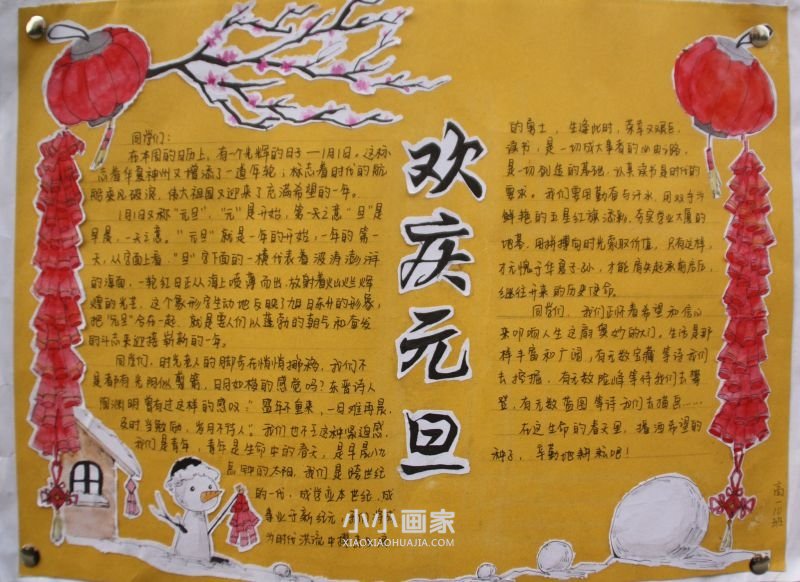 欢庆元旦
同学们：
在本周的日历上，有一个光辉的日子——1月1日。这标
志着华夏神州又增添了一道年轮；标志着时代的航
船乘风破浪，伟大祖国又迎来了充满希望的一年。
1月1日又称“元旦”，“元”是开始，第一天之意“旦”是
早晨，一天之意。“元旦”就是一年的开始，一年的第一
天，从字面上看，“旦”字下面的一横代表着波涛澎湃
的海面，一轮红日正从海上喷薄而出，放射着灿烂辉
煌的光芒，这个象形字生动地反映了旭日东升的形象，
把“元旦”合在一起，就是要人们以蓬勃的朝气和奋发
的斗志来迎接崭新的一年。
同学们，时光老人的脚步在悄悄挪移，我们不
是都有光阴似箭，日月如梭的感觉吗？东晋诗人
陶渊明曾有过这样的感叹：“盛年不重来，一日难再晨，
及时当勉励，岁月不待人”。我们也不乏这种紧迫感，
我们是青年，青年是生命中的春天，是早晨八九
点钟的太阳，我们是跨世纪
的一代，成学业本世纪，成
事业于新纪元
为时代洪流中
的勇士，生逢此时，荣幸又艰巨，
读书，是一切成大事者的必由之路，
是一切创造的基础，认真读书是时代的
要求。我们要用勤奋与汗水，用双手为
鲜艳的五星红旗添彩，夯实宏业大厦的
地基，用拼搏向时光索取价值，只有这样，
才无愧于华夏子孙，才能肩负起承前启后，
继往开来的历史使命。
同学们，我们正怀着希望和信心
来叩响人生这扇奥妙的大门，生活是那
样丰富和广阔，有无数宝藏等待我们
去挖掘，有无数险峰等待我们去攀
登，有无数蓝图等待我们去描画……
在这生命的春天里，播洒希望的
种子，辛勤地耕耘吧！
高一10班
小小画家
XIAOXIAOHUAJIA.COM